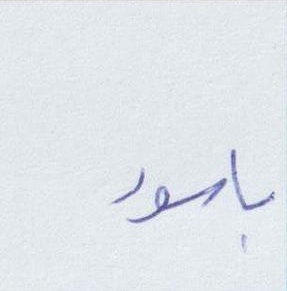 باسود